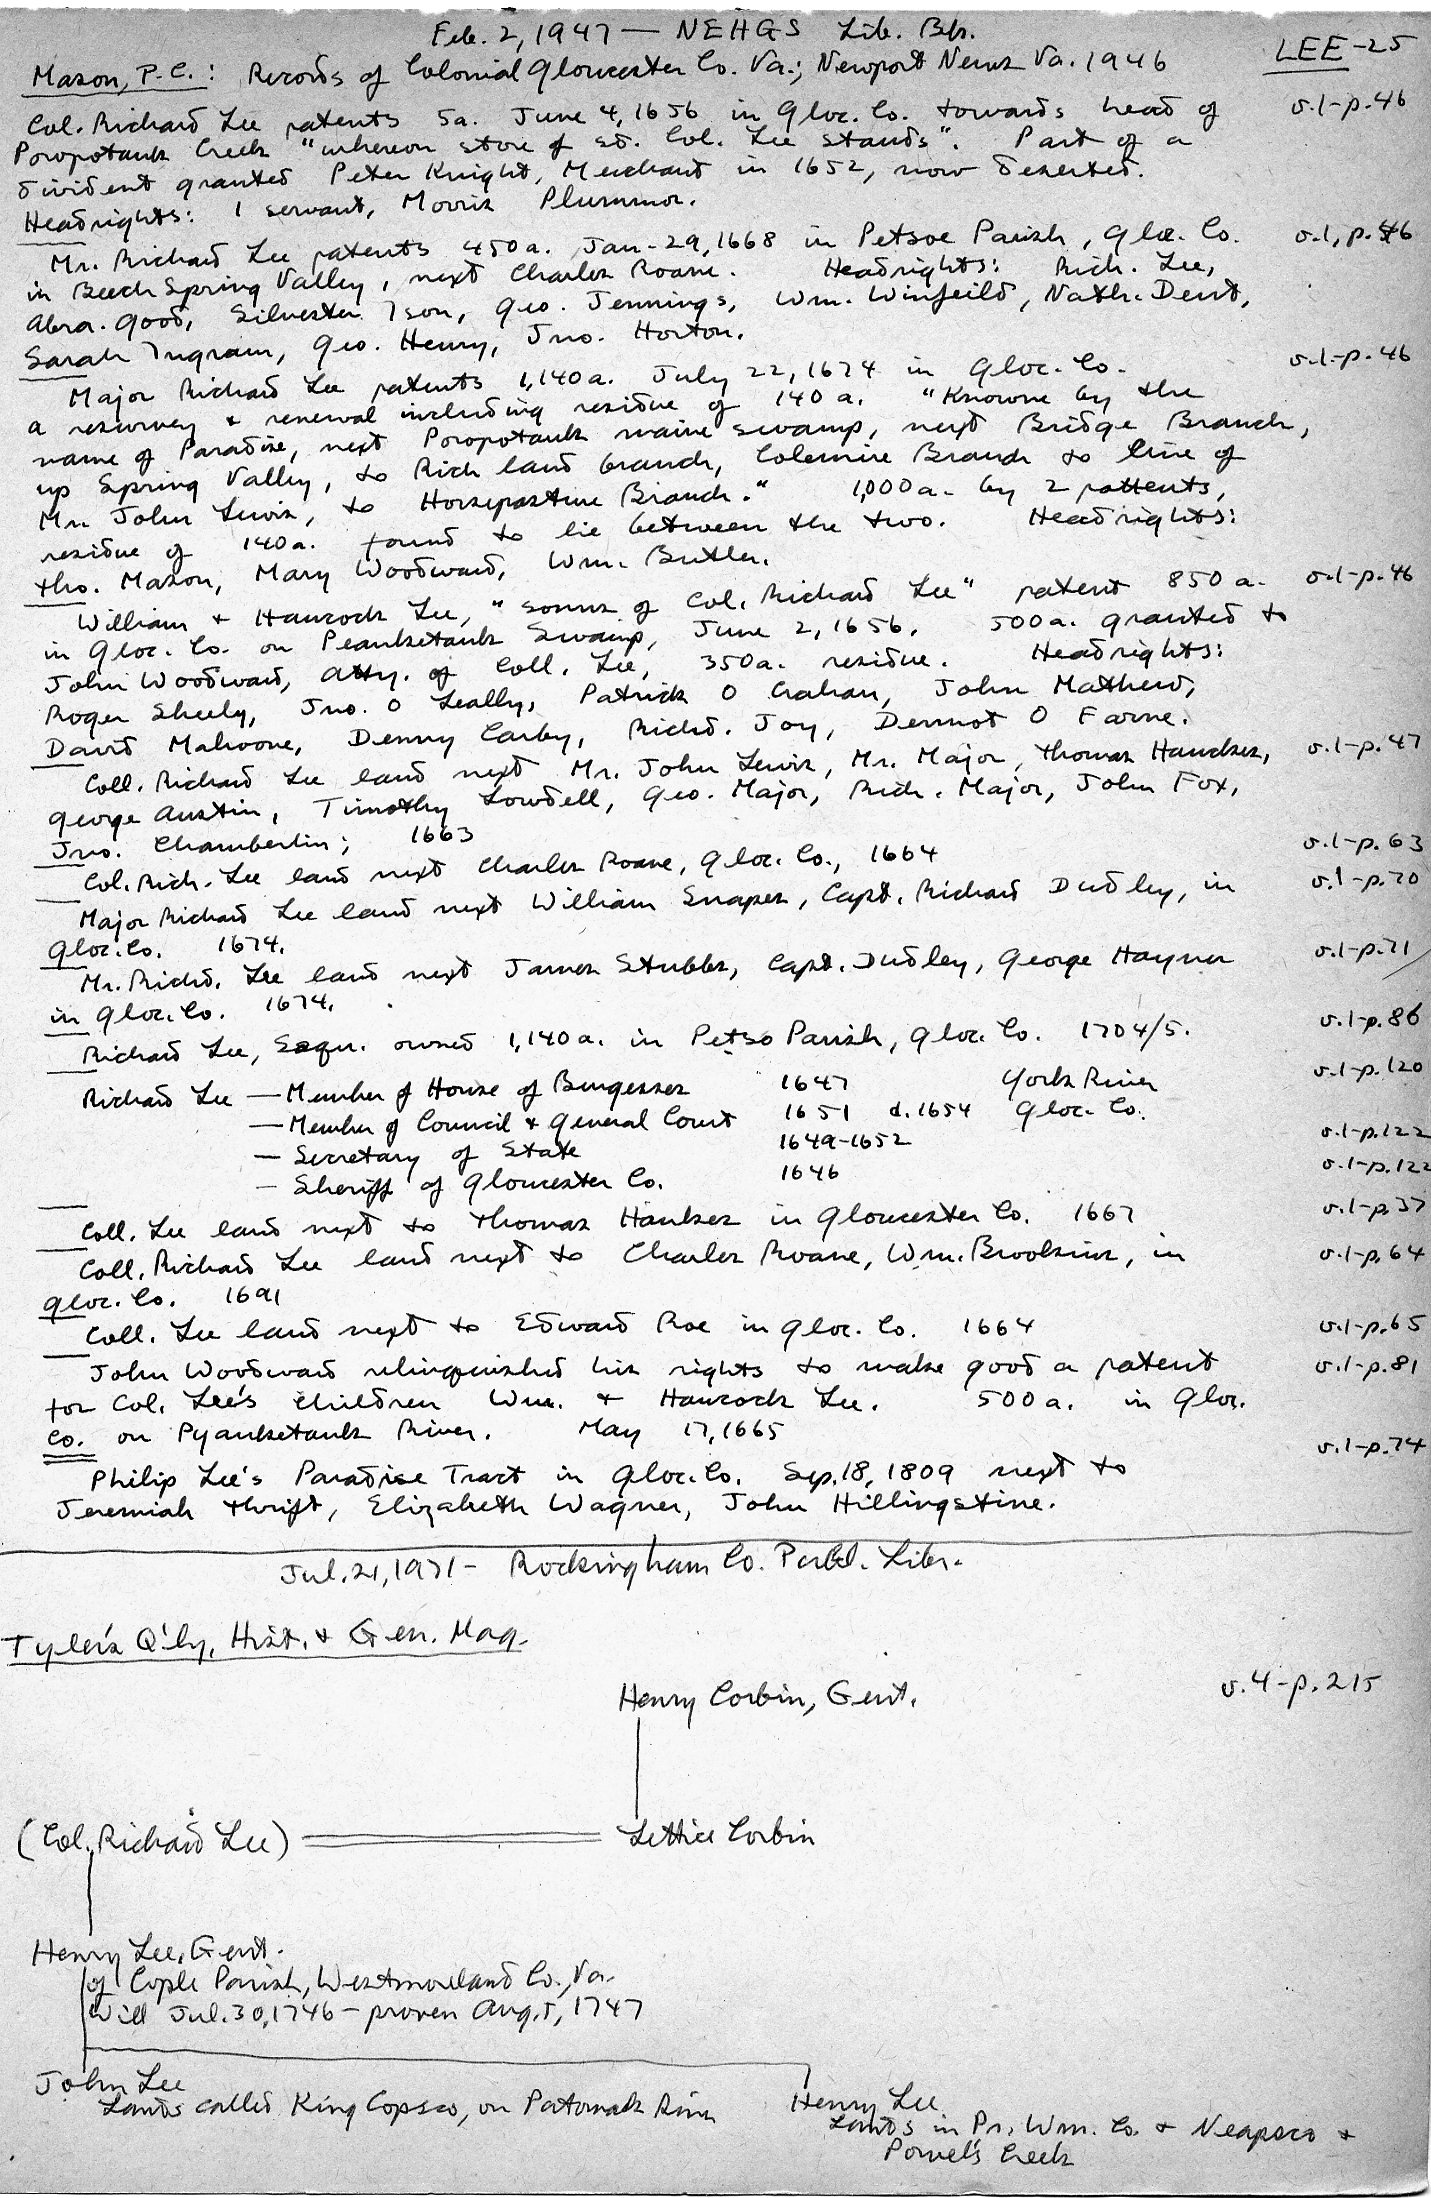 Feb. 2, 1947 — NEHGS Lib. Bk.
LEE-25
Mason, P.C.: Records of Colonial Gloucester Co. Va.; Newport News Va. 1946
Col. Richard Lee patents 5a. June 4, 1656 in Gloc. Co. towards head of v.1-p.46
Poropotank Creek "whereon store of sd. Col. Lee stands". Part of a
divident granted Peter Knight, Merchant in 1652, now deserted.
Headrights: 1 servant, Morris Plummor.
Mr. Richard Lee patents 450a. Jan-29, 1668 in Petsoe Parish, Gloc. Co. v.1, p.46
in Beech Spring Valley, next Charles Roane. Headrights: Rich. Lee,
Abra. Good, Silvester Ison, Geo. Jennings, Wm. Winfeild, Nath. Dent,
Sarah Ingram, Geo. Henry, Jno. Horton.
Major Richard Lee patents 1,140a. July 22, 1674 in Gloc. Co. v.1-p.46
a resurvey & renewal including residue of 140a. "Knowne by the
name of Paradise, next Poropotank maine swamp, next Bridge Branch,
up Spring Valley, to Rich land branch, Colemire Branch to line of
Mr. John Lewis, to Horsepasture Branch." 1,000a. by 2 pattents,
residue of 140a. found to lie between the two. Headrights:
Tho. Mason, Mary Woodward, Wm. Butler.
William & Hancock Lee, "sonns of Col. Richard Lee" patent 850a. v.1-p.46
in Gloc. Co. on Peanketank Swamp, June 2, 1656. 500a. granted to
John Woodward, Atty. of Coll. Lee, 350a. residue. Headrights:
Roger Sheely, Jno. O Leally, Patrick O Crahan, John Mathews,
David Mahoone, Denny Carby, Richd. Joy, Dermot O Farne.
Coll. Richard Lee land next Mr. John Lewis, Mr. Major, Thomas Hanckes, v.1-p.47
George Austin, Timothy Lowdell, Geo. Major, Rich. Major, John Fox,
Jno. Chamberlin; 1663
Col. Rich. Lee land next Charles Roane, Gloc. Co., 1664 v.1-p.63
Major Richard Lee land next William Snapes, Capt. Richard Dudley, in v.1-p.70
Gloc. Co. 1674.
Mr. Richd. Lee land next James Stubbs, Capt. Dudley, George Haynes v.1-p.71
in Gloc. Co. 1674.
Richard Lee, Esqu. owned 1,140a. in Petso Parish, Gloc. Co. 1704/5. v.1-p.86
Richard Lee — Member of House of Burgesses 1647 York River v.1-p.120
— Member of Council & General Court 1651 d. 1654 Gloc. Co.
— Secretary of State 1649-1652 v.1-p.122
— Sheriff of Gloucester Co. 1646 v.1-p.122
Coll. Lee land next to Thomas Hankes in Gloucester Co. 1667 v.1-p.37
Coll. Richard Lee land next to Charles Roane, Wm. Brookins, in v.1-p.64
Gloc. Co. 1691
Coll. Lee land next to Edward Roe in Gloc. Co. 1664 v.1-p.65
John Woodward relinquished his rights to make good a patent v.1-p.81
for Col. Lee's children Wm. & Hancock Lee. 500a. in Gloc.
Co. on Pyanketank River. May 17, 1665
Philip Lee's Paradise Tract in Gloc. Co. Sep. 18, 1809 next to v.1-p.74
Jeremiah Thrift, Elizabeth Wagner, John Hillingstine.
Jul. 21, 1971 - Rockingham Co. Publ. Libr.
Tyler's Q'ly, Hist. & Gen. Mag.
Henry Corbin, Gent. v.4-p.215
(Col. Richard Lee) Lettice Corbin
Henry Lee, Gent.
of Cople Parish, Westmoreland Co., Va.
Will Jul. 30, 1746 - proven Aug. 5, 1747
John Lee
Lands called King Copsco, on Patomack River
Henry Lee
Lands in Pr. Wm. Co. & Neapsco &
Powel's Creek